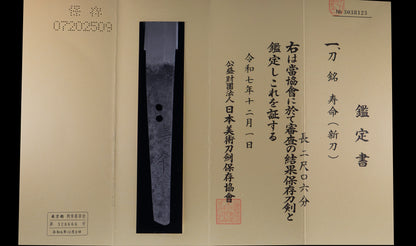 № 3038123
鑑定書
一、刀 銘 寿命(新刀)
長 二尺口六分
右は當協會に於て審査の結果保存刀剣と
鑑定しこれを証する
令和七年十二月一日
公益財團法人 日本美術刀剣保存協會
保存
07202509